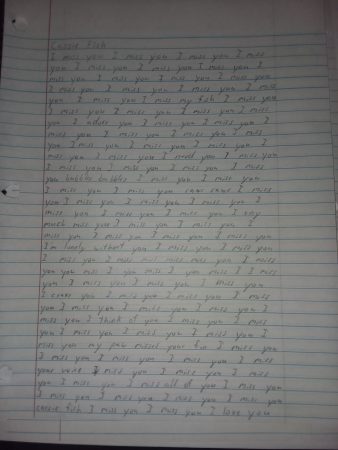 Cassie Fish
I miss you I miss you I miss you I miss
you I miss you I miss you I miss you I
miss you I miss you I miss you I miss you
I miss you I miss you I miss you I miss
you I miss you I miss my fish I miss you
I miss you I miss you I miss you I miss
you I adore you I miss you I miss you I
miss you I miss you I miss you I miss
you I miss you I miss you I miss you I
miss you I miss you I need you I miss you
I miss you I miss you I miss you I miss
you bubbles bubbles I miss you I miss you
I miss you I miss you I miss
you I miss you I miss you I miss you I
miss you I miss you I miss you I very
much miss you I miss you I miss you I
miss you I miss you I miss you I miss you
I'm lonely without you I miss you I miss you
I miss you I miss miss miss miss you I miss
you you miss I you miss I you miss I I miss
you I miss you I miss you I miss you
I crave you I miss you I miss you I miss
you I miss you I miss you I miss you I
miss you I think of you I miss you I miss
you I miss you I miss you I miss you I
miss you my your fin I miss you
I miss you I miss you I miss you I miss
your I miss you I miss you I miss
you I miss you I miss all of you I miss you
I miss you I miss you I miss you I miss you
cassie fish I miss you I miss you I love you